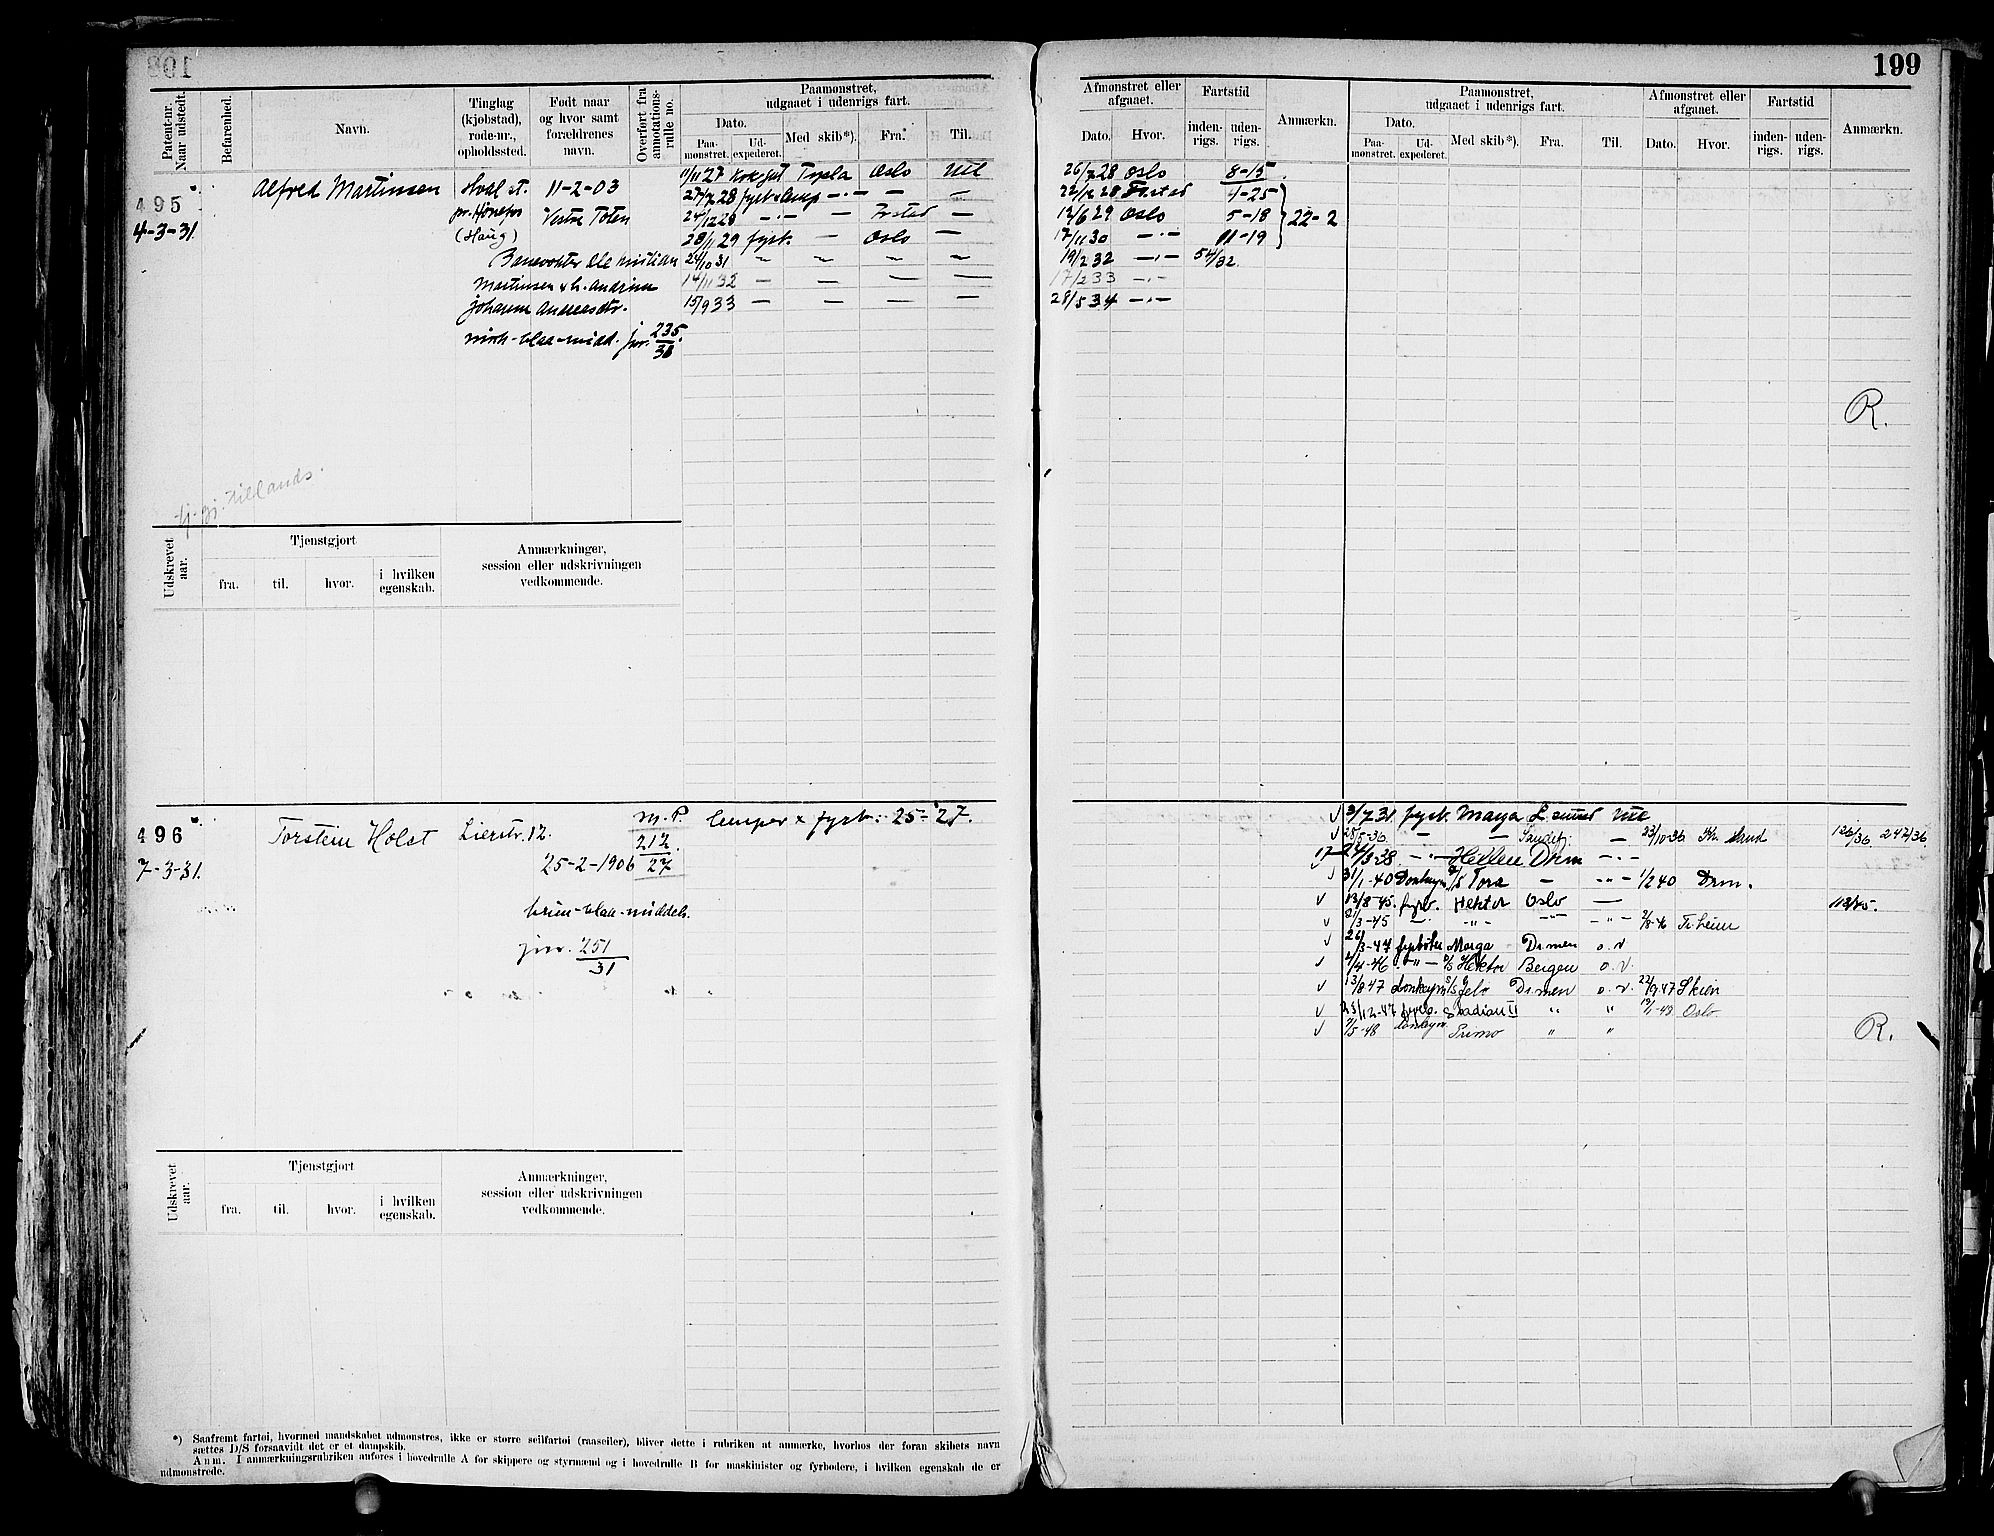 199
Patent-nr. Naar udstedt.
Befarenhed.
Navn.
Tinglag (kjøbstad), rode-nr., opholdssted.
Født naar og hvor samt forældrenes navn.
Overført fra annotations-rulle no.
Paamonstret, udgaaet i udenrigs fart.
Dato.
Paa-monstret.
Ud-expederet.
Med skib*).
Fra.
Til.
Afmonstret eller afgaaet.
Dato.
Hvor.
Fartstid
inden-rigs.
uden-rigs.
Anmærkn.
Paamonstret, udgaaet i udenrigs fart.
Dato.
Paa-monstret.
Ud-expederet.
Med skib*).
Fra.
Til.
Afmonstret eller afgaaet.
Dato.
Hvor.
Fartstid
inden-rigs.
uden-rigs.
Anmærkn.
495
4-3-31
Alfred Martinsen
Hval st.
pr. Hønefos
(Haug)
11-2-03
Vestre Toten
Banevokter Ole Kristian
Martinsen & h. Andrine
Johanne Andreasdtr.
mørk-blaa-midd. jnr. 235/31
11/11 27 Topla Oslo Utl
27/7 28 fyrb & lemp — — —
24/12 28 — — —
28/11 29 fyrb. — Oslo —
24/10 31 " " " "
14/11 32 — — — —
15/9 33 — — — —
26/7 28 Oslo 8-15
22/12 28 4-25
12/6 29 Oslo 5-18 22-2
17/11 30 — 11-19
19/2 32 — 54/32
17/2 33 —
28/5 34 —
R.
tillands.
Udskrevet aar.
Tjenstgjort
fra.
til.
hvor.
i hvilken egenskab.
Anmærkninger, session eller udskrivningen vedkommende.
496
7-3-31.
Torstein Holst
Lierstr. 12.
25-2-1906
M.P.
212/27
brun-blaa-middels.
jnr. 251/31
lemper & fyrb.: 25-27.
3/7 31 fyrb. Marga utl
28/5-36 — — Sandefj. — 23/10-36 Kr. sand 126/36 242/36
Hellen Drm —
31/1-40 Donkeym. D/S Tora — — 1/2 40 Drm.
13/8-45 fyrb. Hektor Oslo — 113/45.
21/3-45 — " — —
26/3-47 fyrbøter Marga Dr.men o.v
4/4-46 — " — D/S Hektor Bergen o.v.
13/8 47 donkeym S/S Jelø Dr.men o.v. 22/9 47 Skien
23/12-47 " " 19/1-48 Oslo
7/5-48 donkeym Primo " "
R.
Udskrevet aar.
Tjenstgjort
fra.
til.
hvor.
i hvilken egenskab.
Anmærkninger, session eller udskrivningen vedkommende.
*) Saafremt fartøi, hvormed mandskabet udmonstres, ikke er større seilfartøi (raaseiler), bliver dette i rubriken at anmærke, hvorhos der foran skibets navn
sættes D/S forsaavidt det er et dampskib.
Anm. I anmærkningsrubriken anføres i hovedrulle A for skippere og styrmænd og i hovedrulle B for maskinister og fyrbødere, i hvilken egenskab de er
udmonstrede.